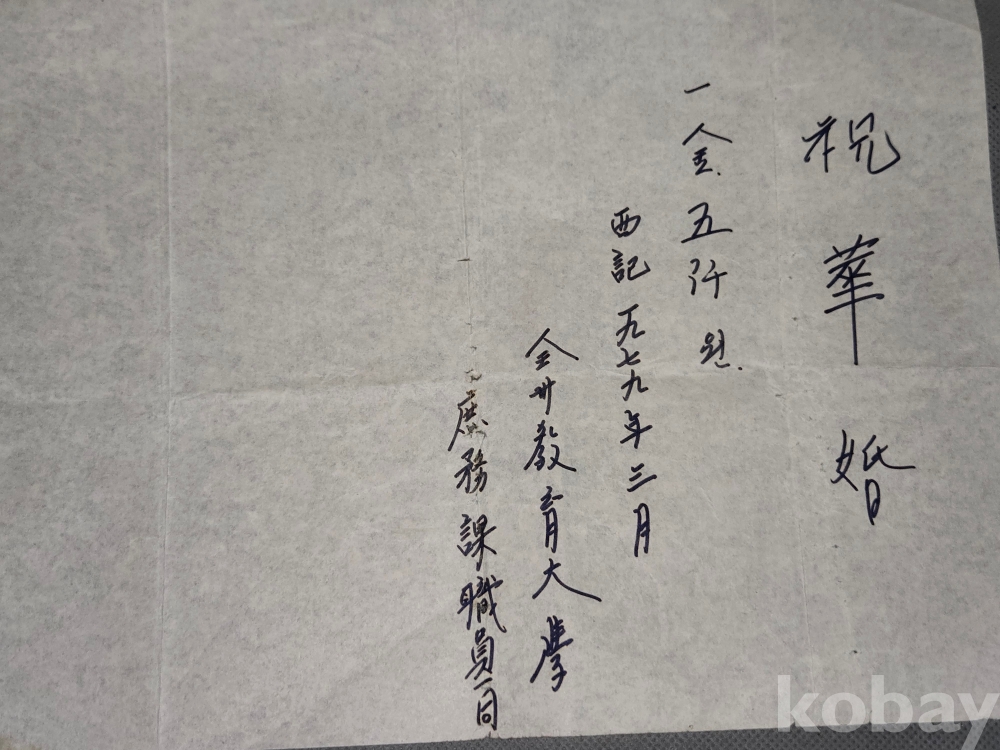 祝華婚
一金五仟원.
西記一九七九年三月
全州敎育大學
庶務課職員一同
kobay